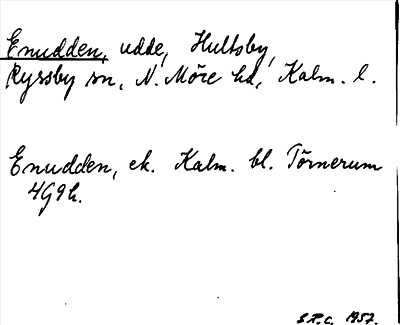 Enudden, udde, Hultsby,
Ryssby sn, N. Möre hd, Kalm. l.
Enudden, ek. Kalm. bl. Törnerum
4G9h.
S.R.C. 1957.